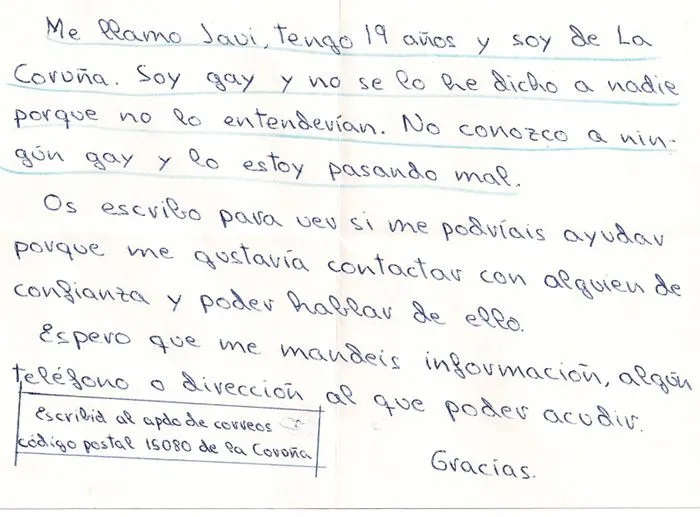 Me llamo Javi, tengo 19 años y soy de La
Coruña. Soy gay y no se lo he dicho a nadie
porque no lo entenderían. No conozco a nin-
gún gay y lo estoy pasando mal.
Os escribo para ver si me podríais ayudar
porque me gustaría contactar con alguien de
confianza y poder hablar de ello.
Espero que me mandeis información, algún
teléfono o dirección al que poder acudir.
Escribid al apdo de correos
código postal 15080 de la Coruña
Gracias.